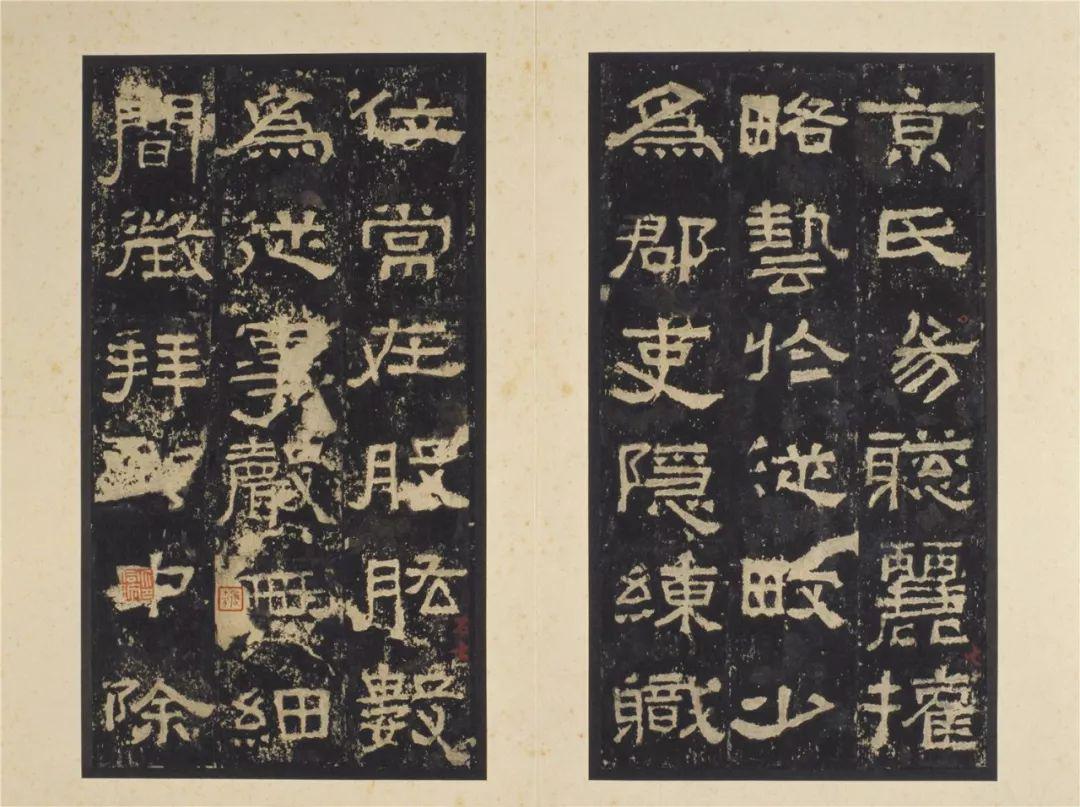 京氏易聰麗權
略藝於從畋少
為郡吏隱練職
位常在股肱數
為從事聲無細
間徵拜郎中除